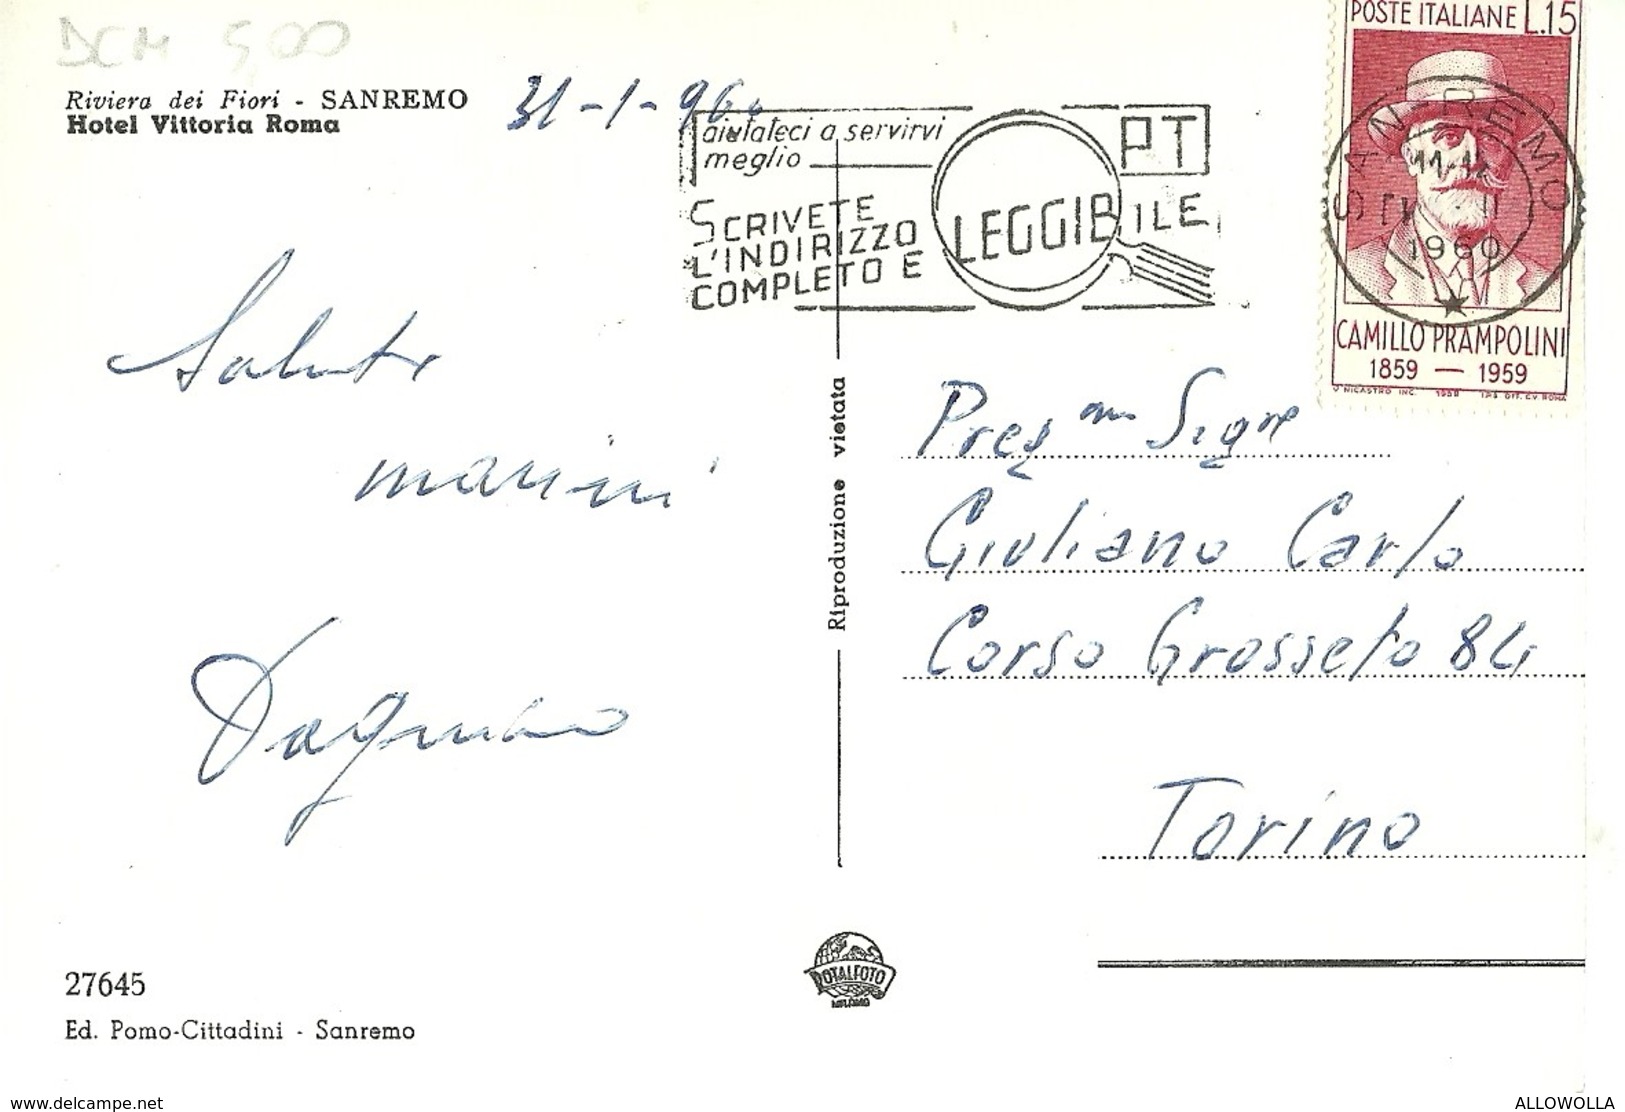 DCM 5,00
Riviera dei Fiori - SANREMO
Hotel Vittoria Roma
31-1-960
aiutateci a servirvi
meglio
PT
SCRIVETE
L'INDIRIZZO
COMPLETO E LEGGIBILE
POSTE ITALIANE L.15
SAN REMO
11-12
II
1960
CAMILLO PRAMPOLINI
1859 — 1959
V. NICASTRO INC. 1959 IPS OFF. CV ROMA
Saluti
marini
Preg mo Sigre
Giuliano Carlo
Corso Grosseto 84
Torino
Riproduzione vietata
ROTALFOTO
MILANO
27645
Ed. Pomo-Cittadini - Sanremo
www.delcampe.net
ALLOWOLLA